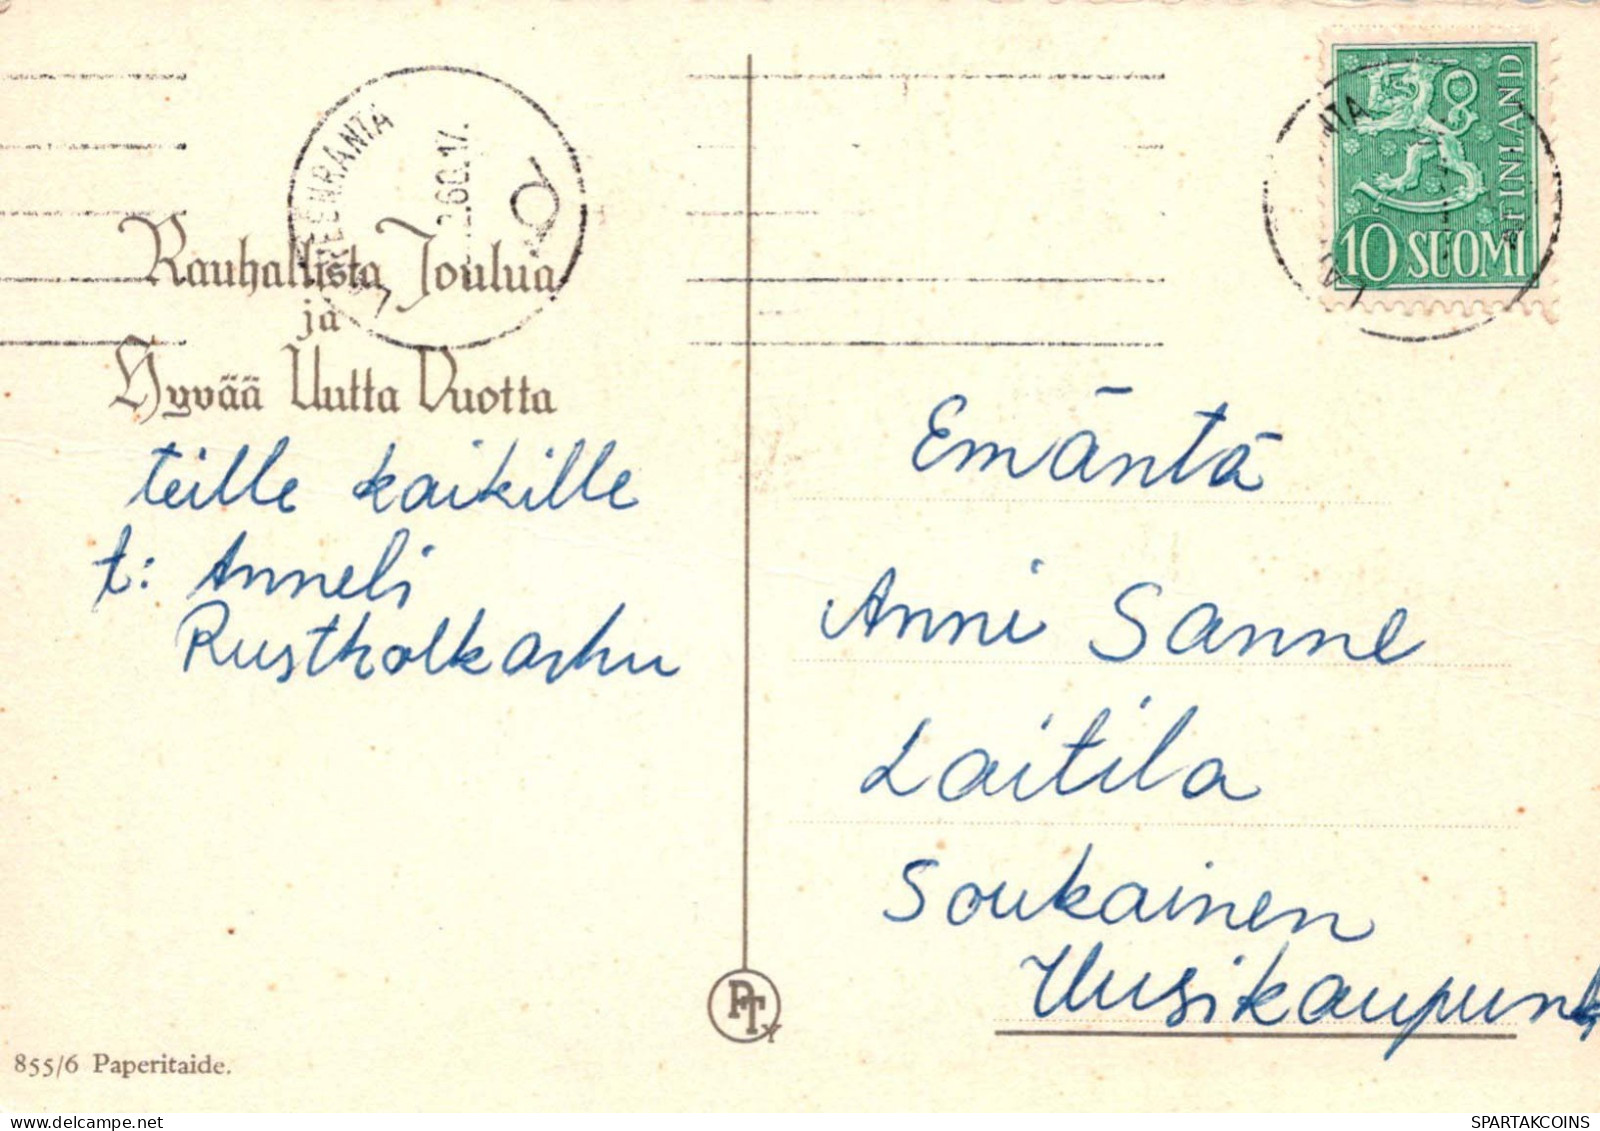 Rauhallista Joulua
ja
Hyvää Uutta Vuotta
teille kaikille
t: Anneli
Rustholkarhu
855/6 Paperitaide.
PTY
10 SUOMI
FINLAND
Emäntä
Anni Sanne
Laitila
Soukainen
Uusikaupunki
www.delcampe.net
SPARTAKCOINS